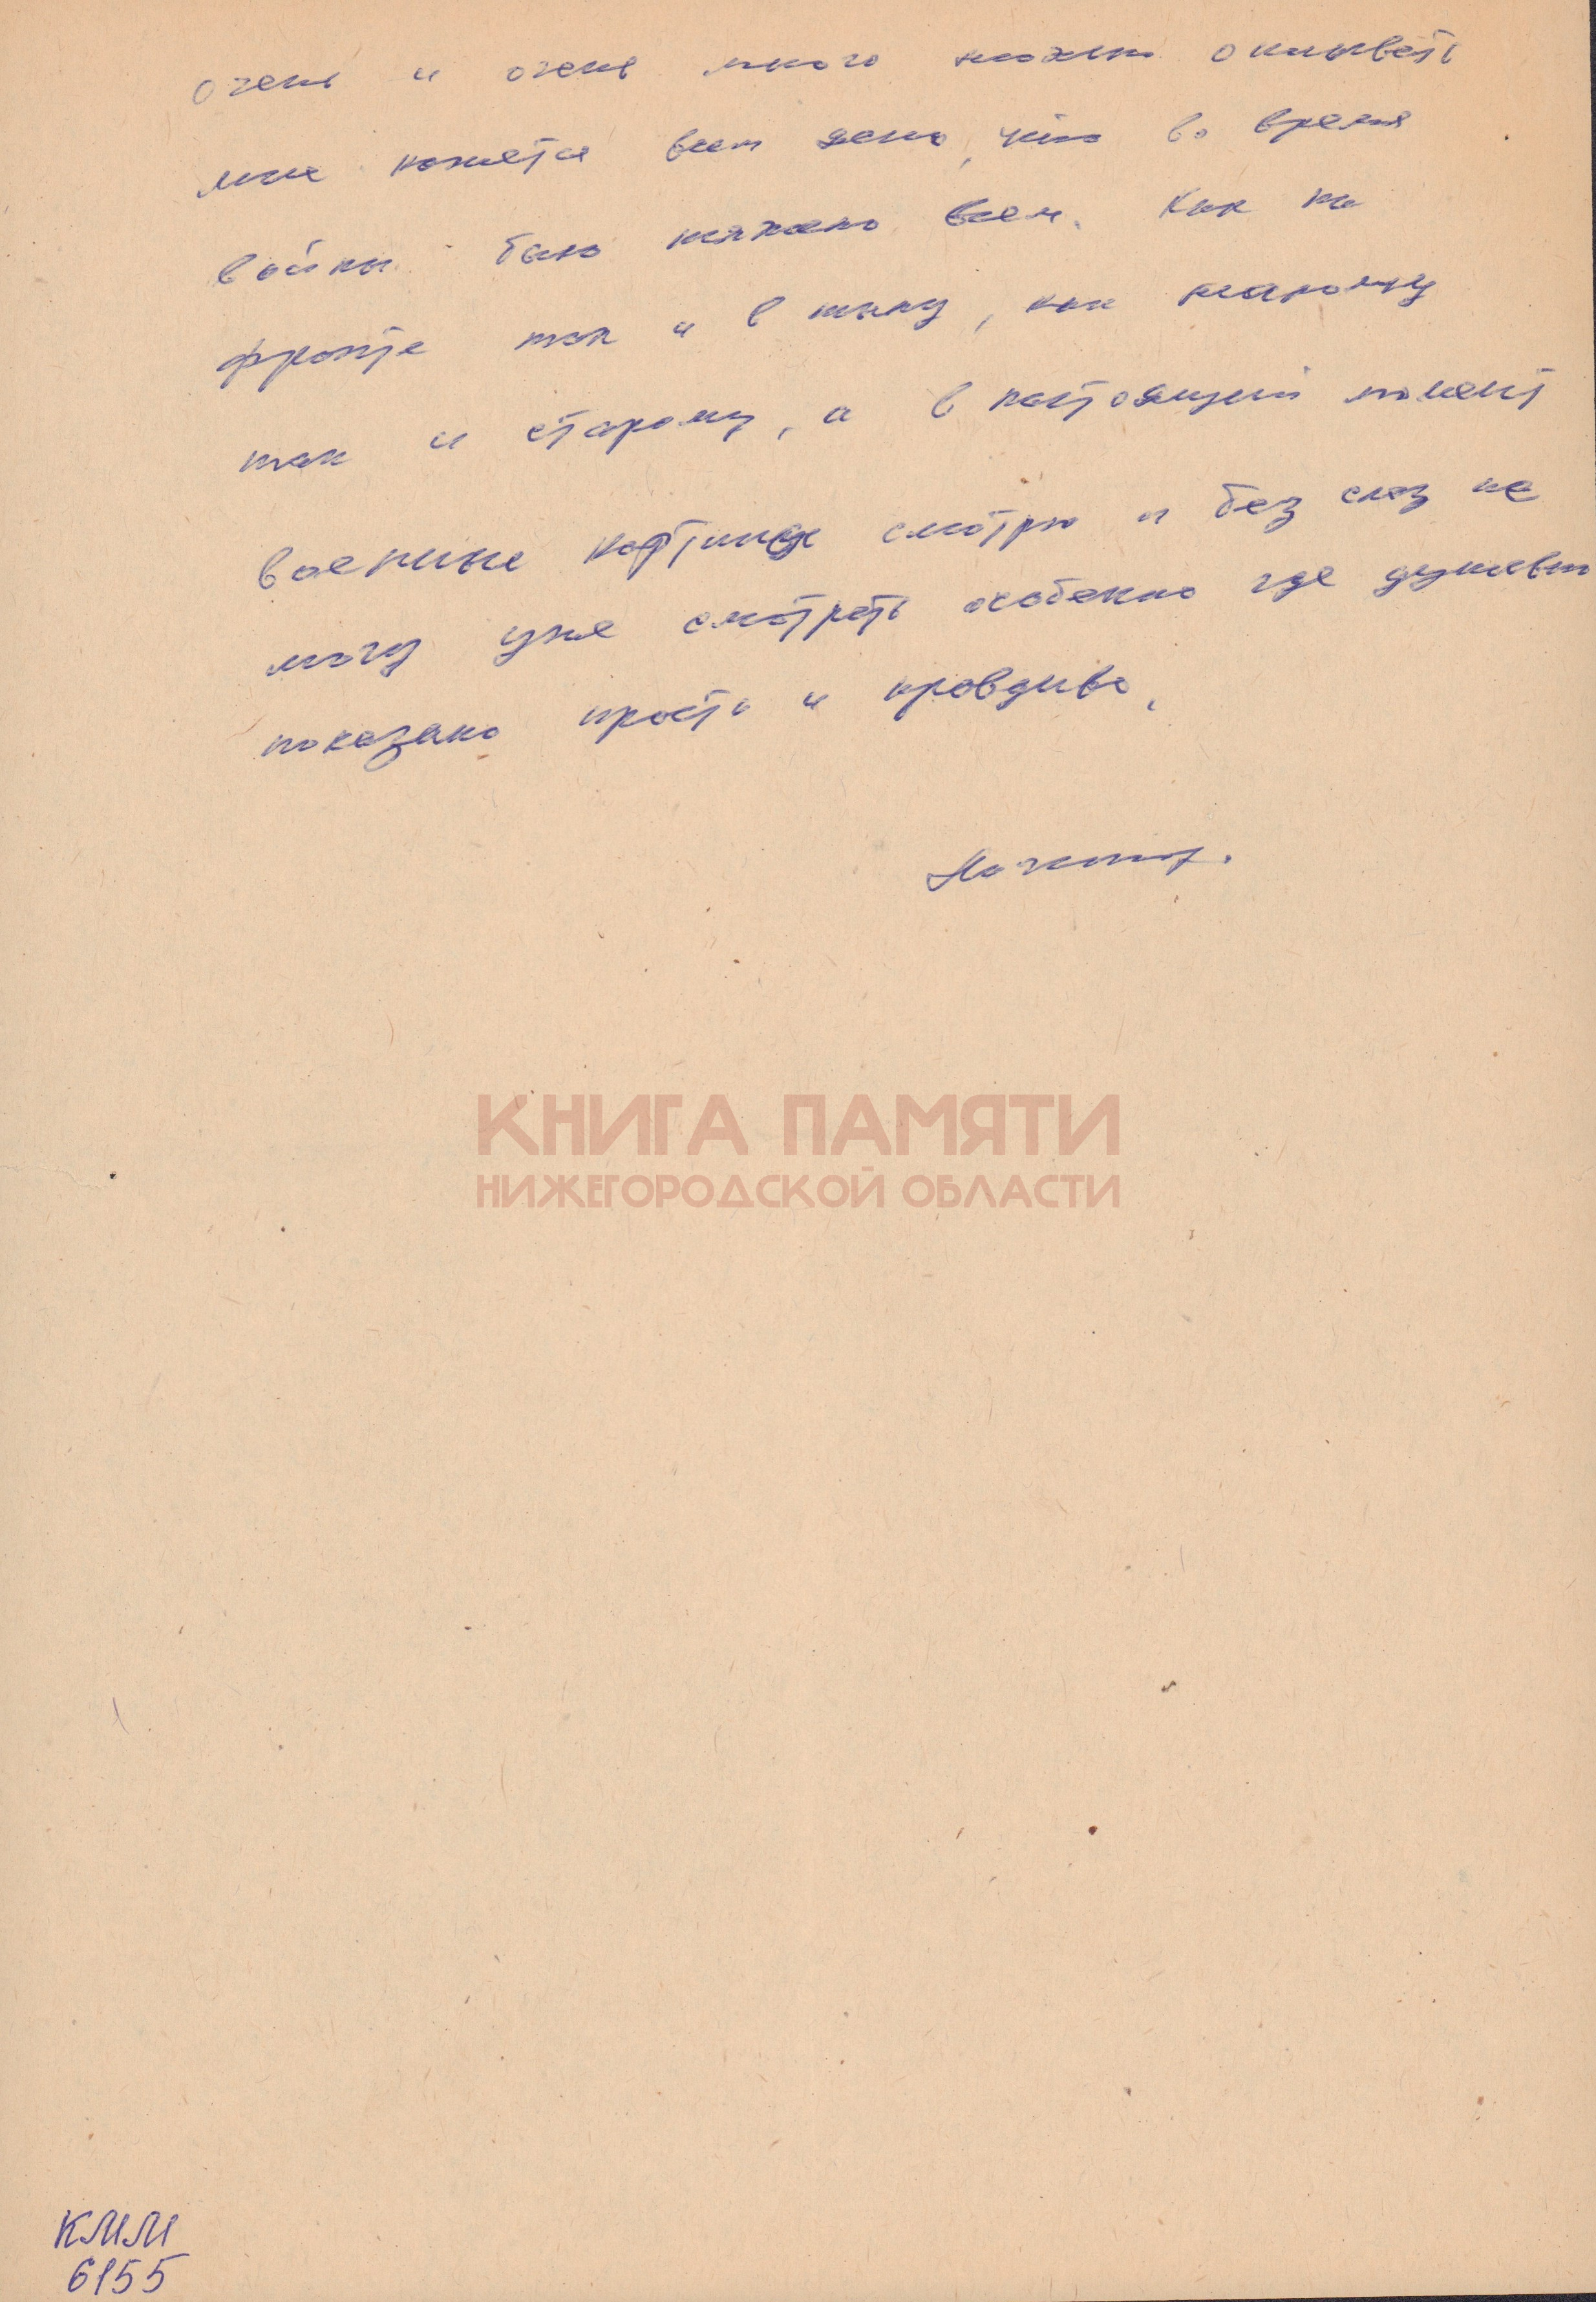 очень и очень много можно описывать
мне кажется всем ясно, что во время
войны было тяжело всем. Как на
фронте так и в тылу, как малому
так и старому, а в настоящий момент
военные картины смотрю и без слез не
могу уже смотреть особенно где душевно
показано просто и правдиво.
КНИГА ПАМЯТИ
НИЖЕГОРОДСКОЙ ОБЛАСТИ
КММ
6155